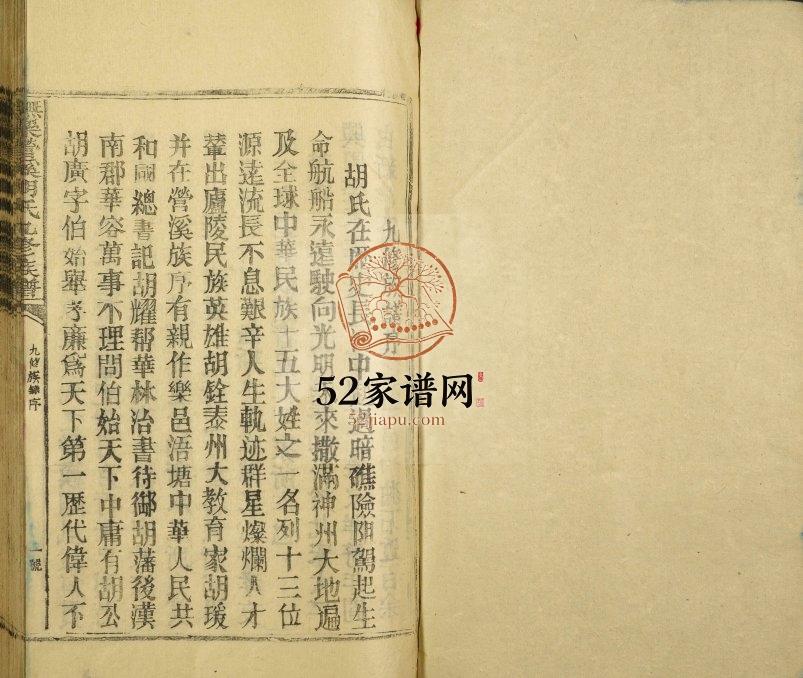 九修族譜序
胡氏在歷史長中過暗礁險阻駕起生
命航船永遠駛向光明來撒滿神州大地遍
及全球中華民族十五大姓之一名列十三位
源遠流長不息艱辛人生軌迹群星燦爛人才
輩出廬陵民族英雄胡銓泰州大教育家胡瑗
并在營溪族序有親作樂邑浯塘中華人民共
和國總書記胡耀幇華林治書待御胡藩後漢
南郡華容萬事不理問伯始天下中庸有胡公
胡廣字伯始舉孝廉爲天下第一歷代偉人不
營溪胡氏九修族譜
九修族譜序
一號
52家谱网
52jiapu.com